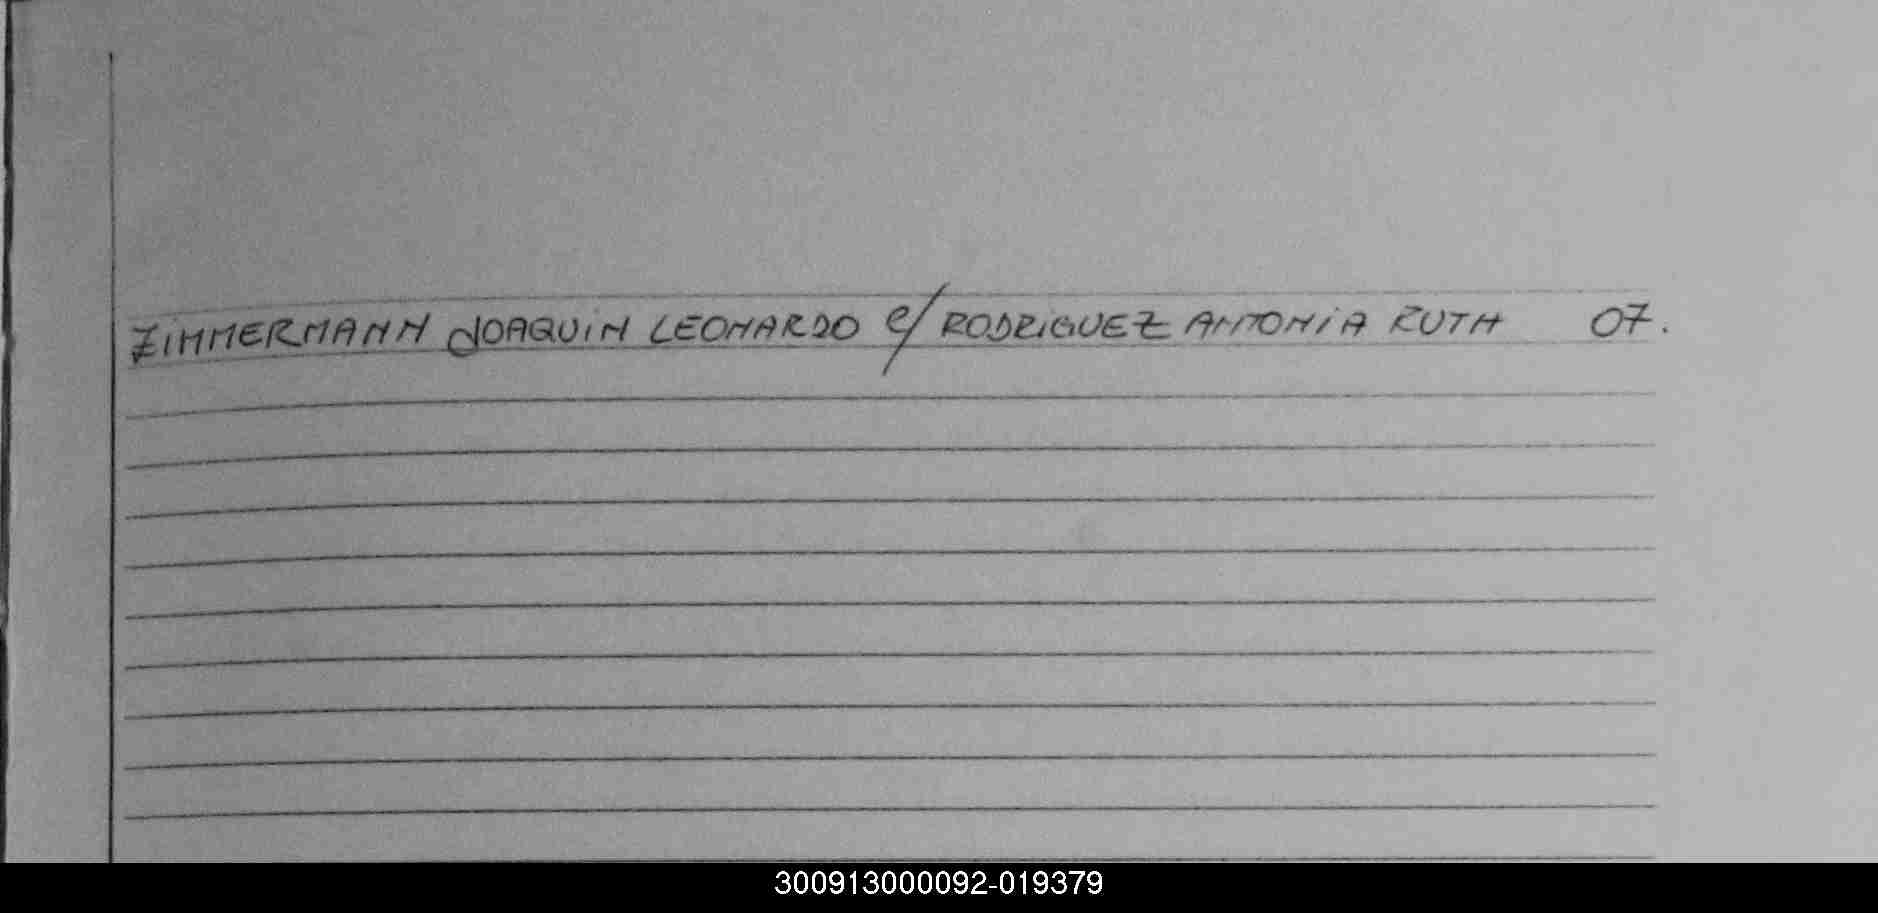 ZIMMERMANN JOAQUIN LEONARDO C/ RODRIGUEZ ANTONIA RUTH 07.
300913000092-019379